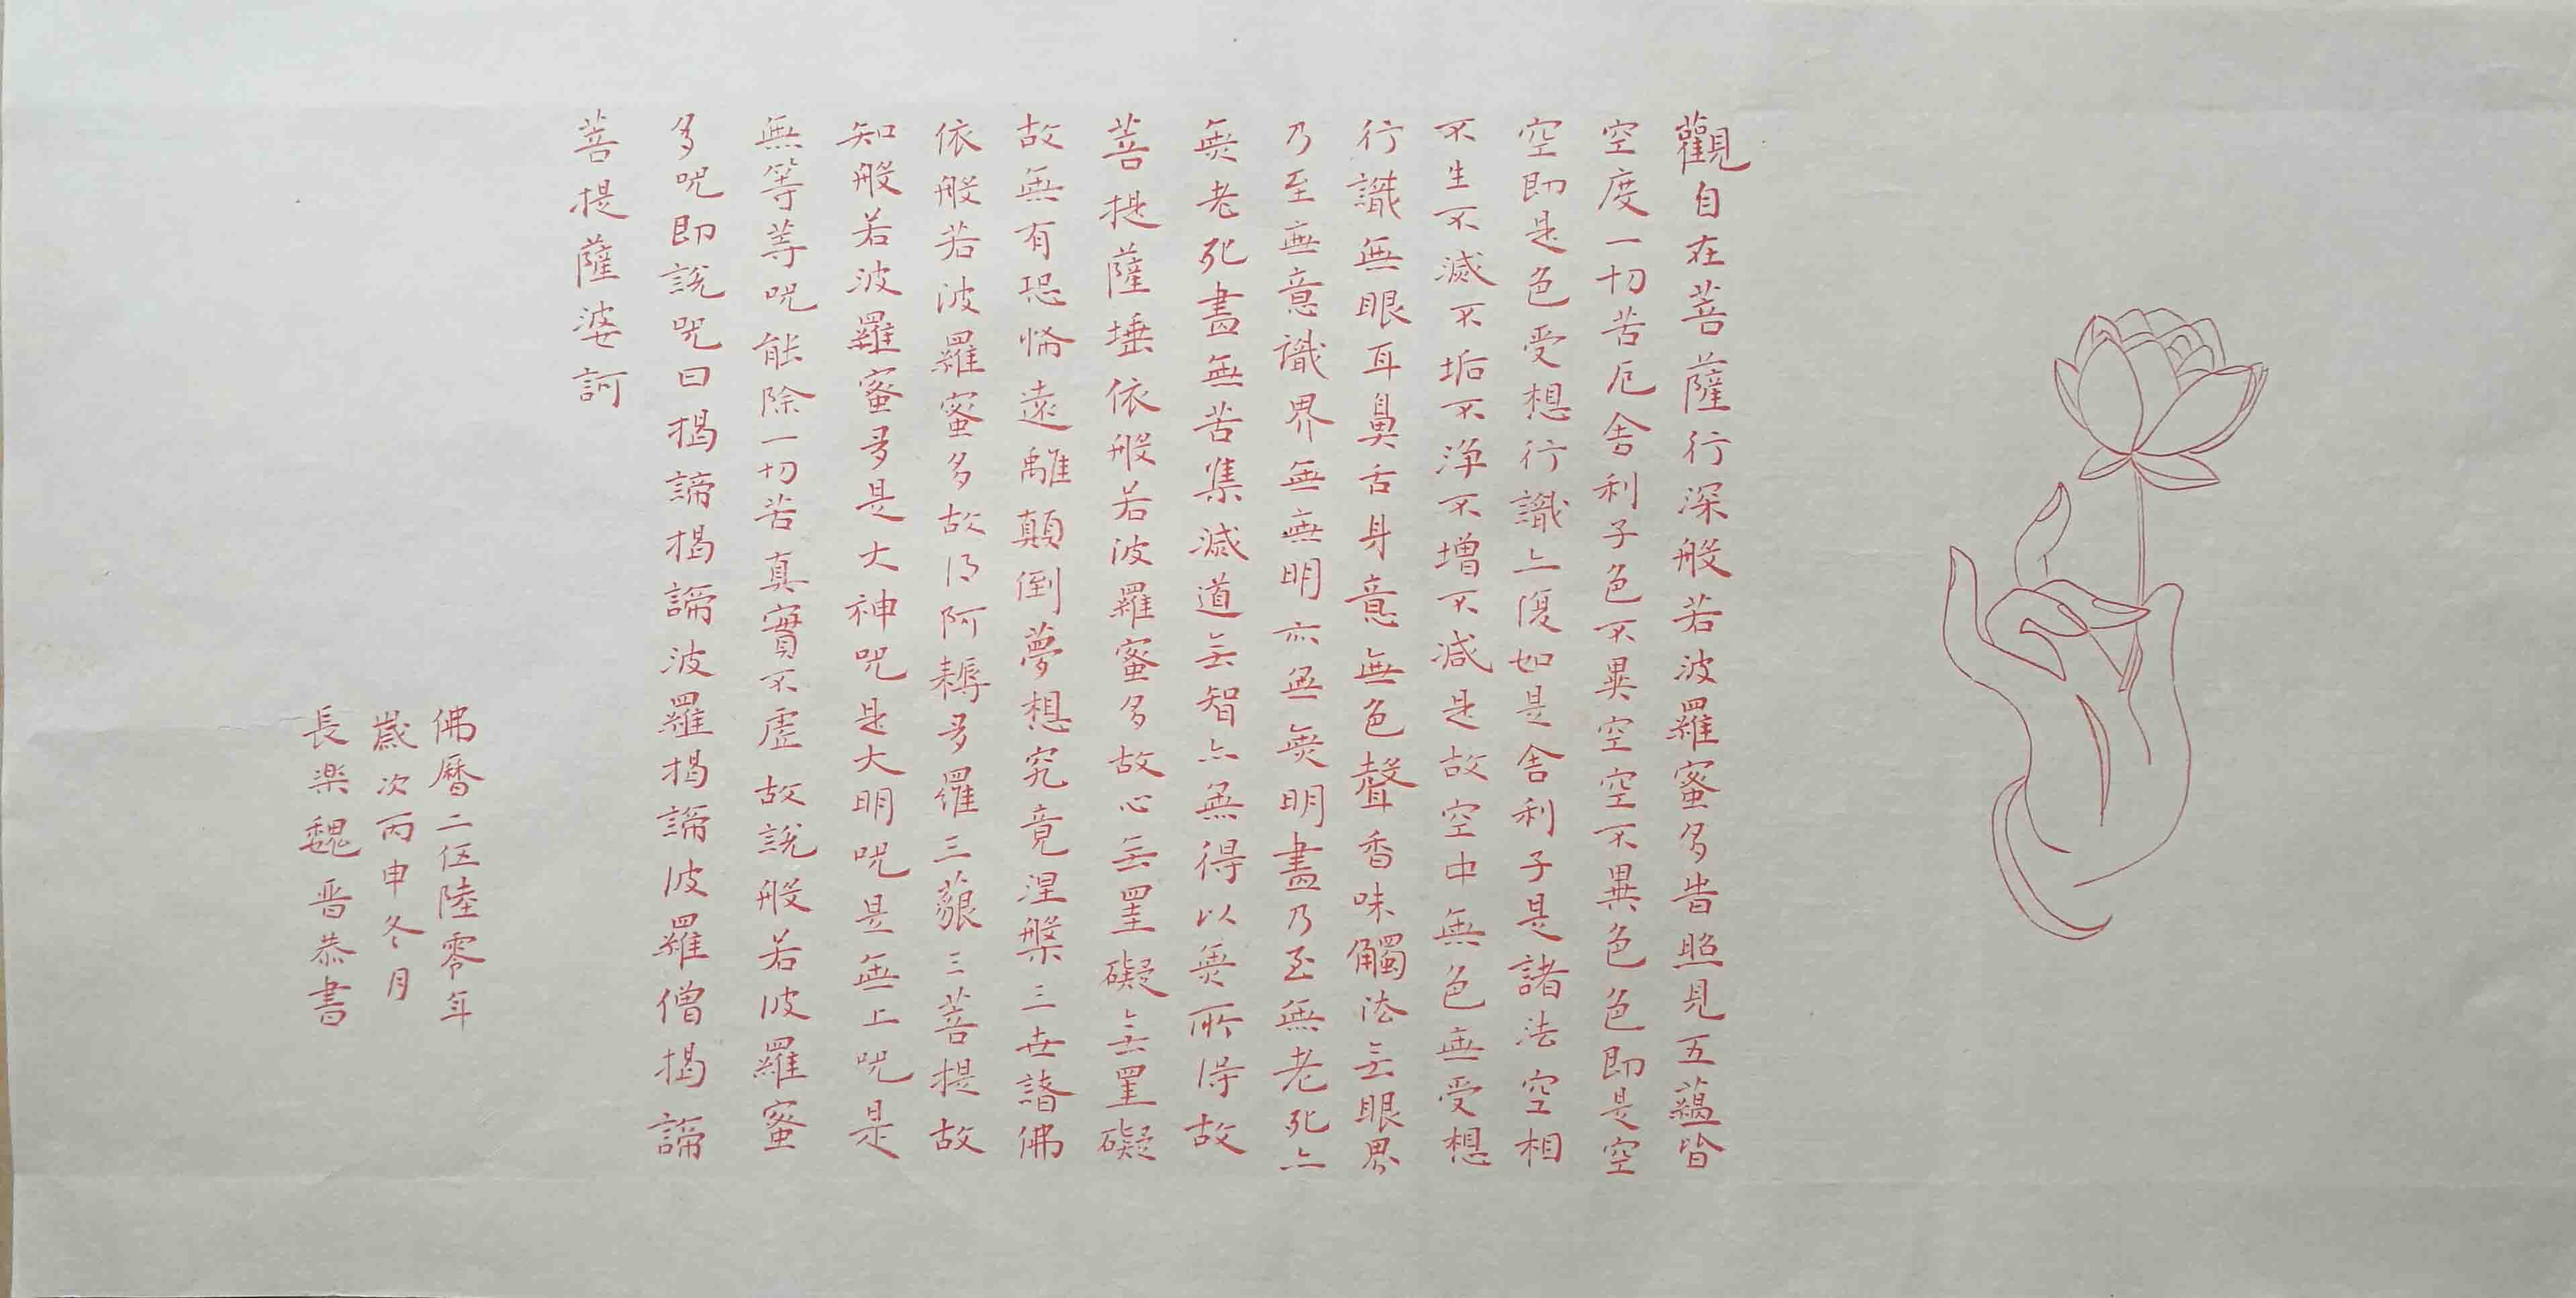 觀自在菩薩行深般若波羅蜜多旹照見五蘊皆
空度一切苦厄舍利子色不異空空不異色色即是空
空即是色受想行識亦復如是舍利子是諸法空相
不生不滅不垢不淨不增不減是故空中無色無受想
行識無眼耳鼻舌身意無色聲香味觸法無眼界
乃至無意識界無無明亦無無明盡乃至無老死亦
無老死盡無苦集滅道無智亦無得以無所得故
菩提薩埵依般若波羅蜜多故心無罣礙無罣礙
故無有恐怖遠離顛倒夢想究竟涅槃三世諸佛
依般若波羅蜜多故得阿耨多羅三藐三菩提故
知般若波羅蜜多是大神咒是大明咒是無上咒是
無等等咒能除一切苦真實不虛故說般若波羅蜜
多咒即說咒曰揭諦揭諦波羅揭諦波羅僧揭諦
菩提薩婆訶
佛曆二伍陸零年
歲次丙申冬月
長楽魏晋恭書